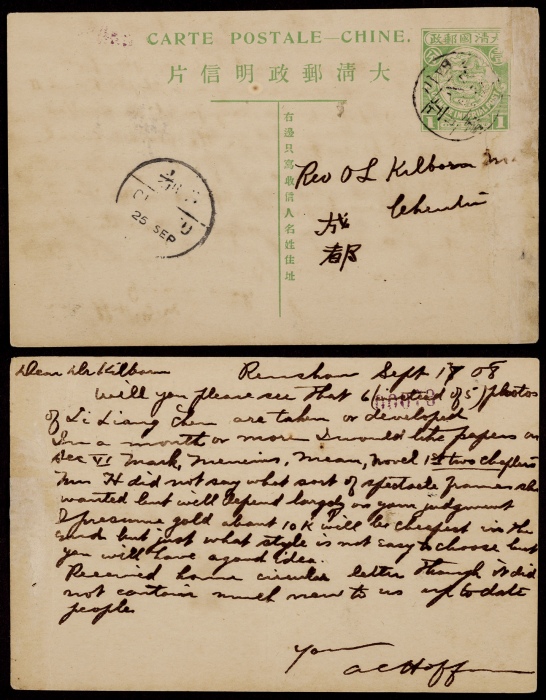 CARTE POSTALE—CHINE.
大清國郵政
片信明政郵清大
1 1
右邊只寫收信人名姓住址
25 SEP
Rev O L Kilborn
Chentu
成
都
Dear Dr Kilborn Renshow Sept 18 08
Will you please see that 6 (instead of 5) photos
of Li Liang Chen are taken or developed
In a month or more I would like papers on
Sec VI Mark, Mencius, Mean, Novel 1st two chapters
Mrs H did not say what sort of spectacle frames she
wanted but will depend largely on your judgment
I presume gold about 10 K will be cheapest in the
end but just what style is not easy to choose but
you will have a good idea.
Received home circular letter though it did
not contain much new to us up to date
people
Yours
A C Hoffman